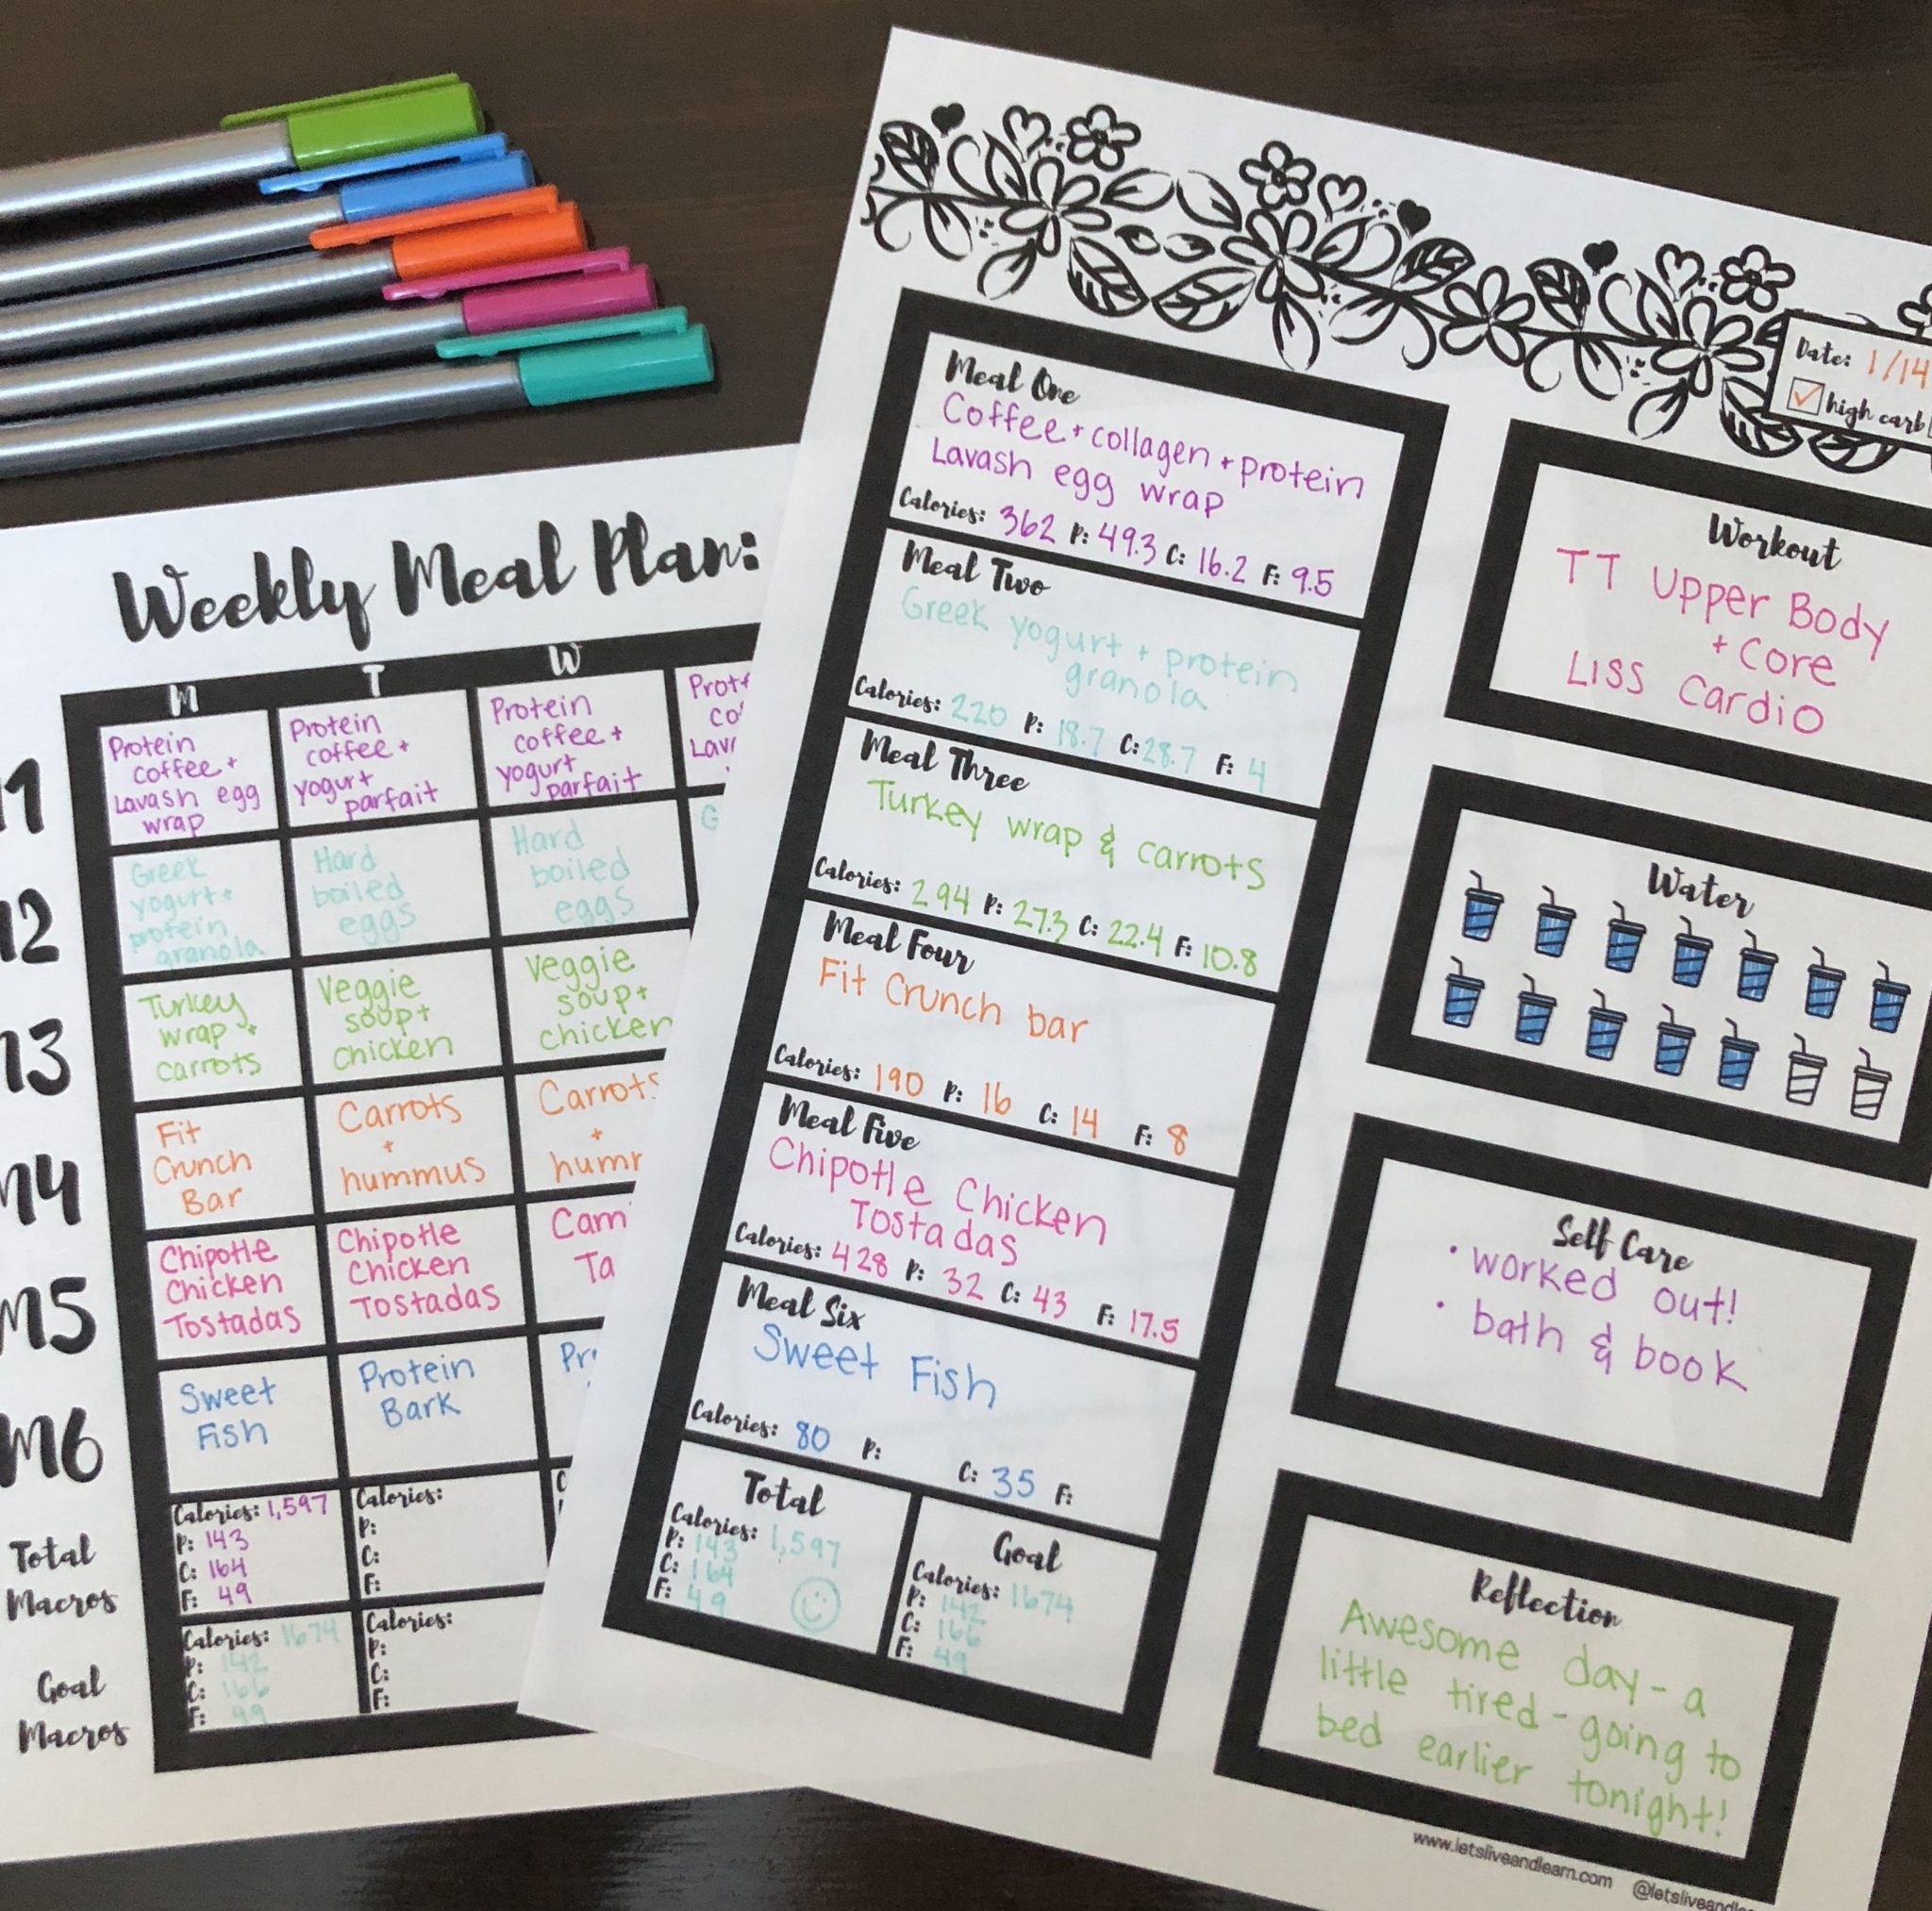 Weekly Meal Plan:
M T W
M1
Protein
coffee +
Lavash egg
wrap
Protein
coffee +
yogurt
parfait
Protein
coffee +
yogurt
parfait
M2
Greek
yogurt +
protein
granola
Hard
boiled
eggs
Hard
boiled
eggs
G
M3
Turkey
wrap +
carrots
Veggie
soup +
chicken
Veggie
soup +
chicken
M4
Fit
Crunch
Bar
Carrots
+
hummus
Carrots
+
M5
Chipotle
Chicken
Tostadas
Chipotle
Chicken
Tostadas
M6
Sweet
Fish
Protein
Bark
Total
Macros
Calories: 1,597
P: 143
C: 164
F: 49
Calories:
P:
C:
F:
Goal
Macros
Calories: 1674
P: 142
C: 166
F: 49
Calories:
P:
C:
F:
Date: 1/14
high carb
Meal One
Coffee + collagen + protein
Lavash egg wrap
Calories: 362 P: 49.3 C: 16.2 F: 9.5
Meal Two
Greek yogurt + protein
granola
Calories: 220 P: 18.7 C: 28.7 F: 4
Meal Three
Turkey wrap & carrots
Calories: 294 P: 27.3 C: 22.4 F: 10.8
Meal Four
Fit Crunch bar
Calories: 190 P: 16 C: 14 F: 8
Meal Five
Chipotle Chicken
Tostadas
Calories: 428 P: 32 C: 43 F: 17.5
Meal Six
Sweet Fish
Calories: 80 P: C: 35 F:
Total
Calories: 1,597
P: 143
C: 164
F: 49
Goal
Calories: 1674
P: 142
C: 166
F: 49
Workout
TT Upper Body
+ Core
LISS Cardio
Water
Self Care
• worked out!
• bath & book
Reflection
Awesome day - a
little tired - going to
bed earlier tonight!
www.letsliveandlearn.com